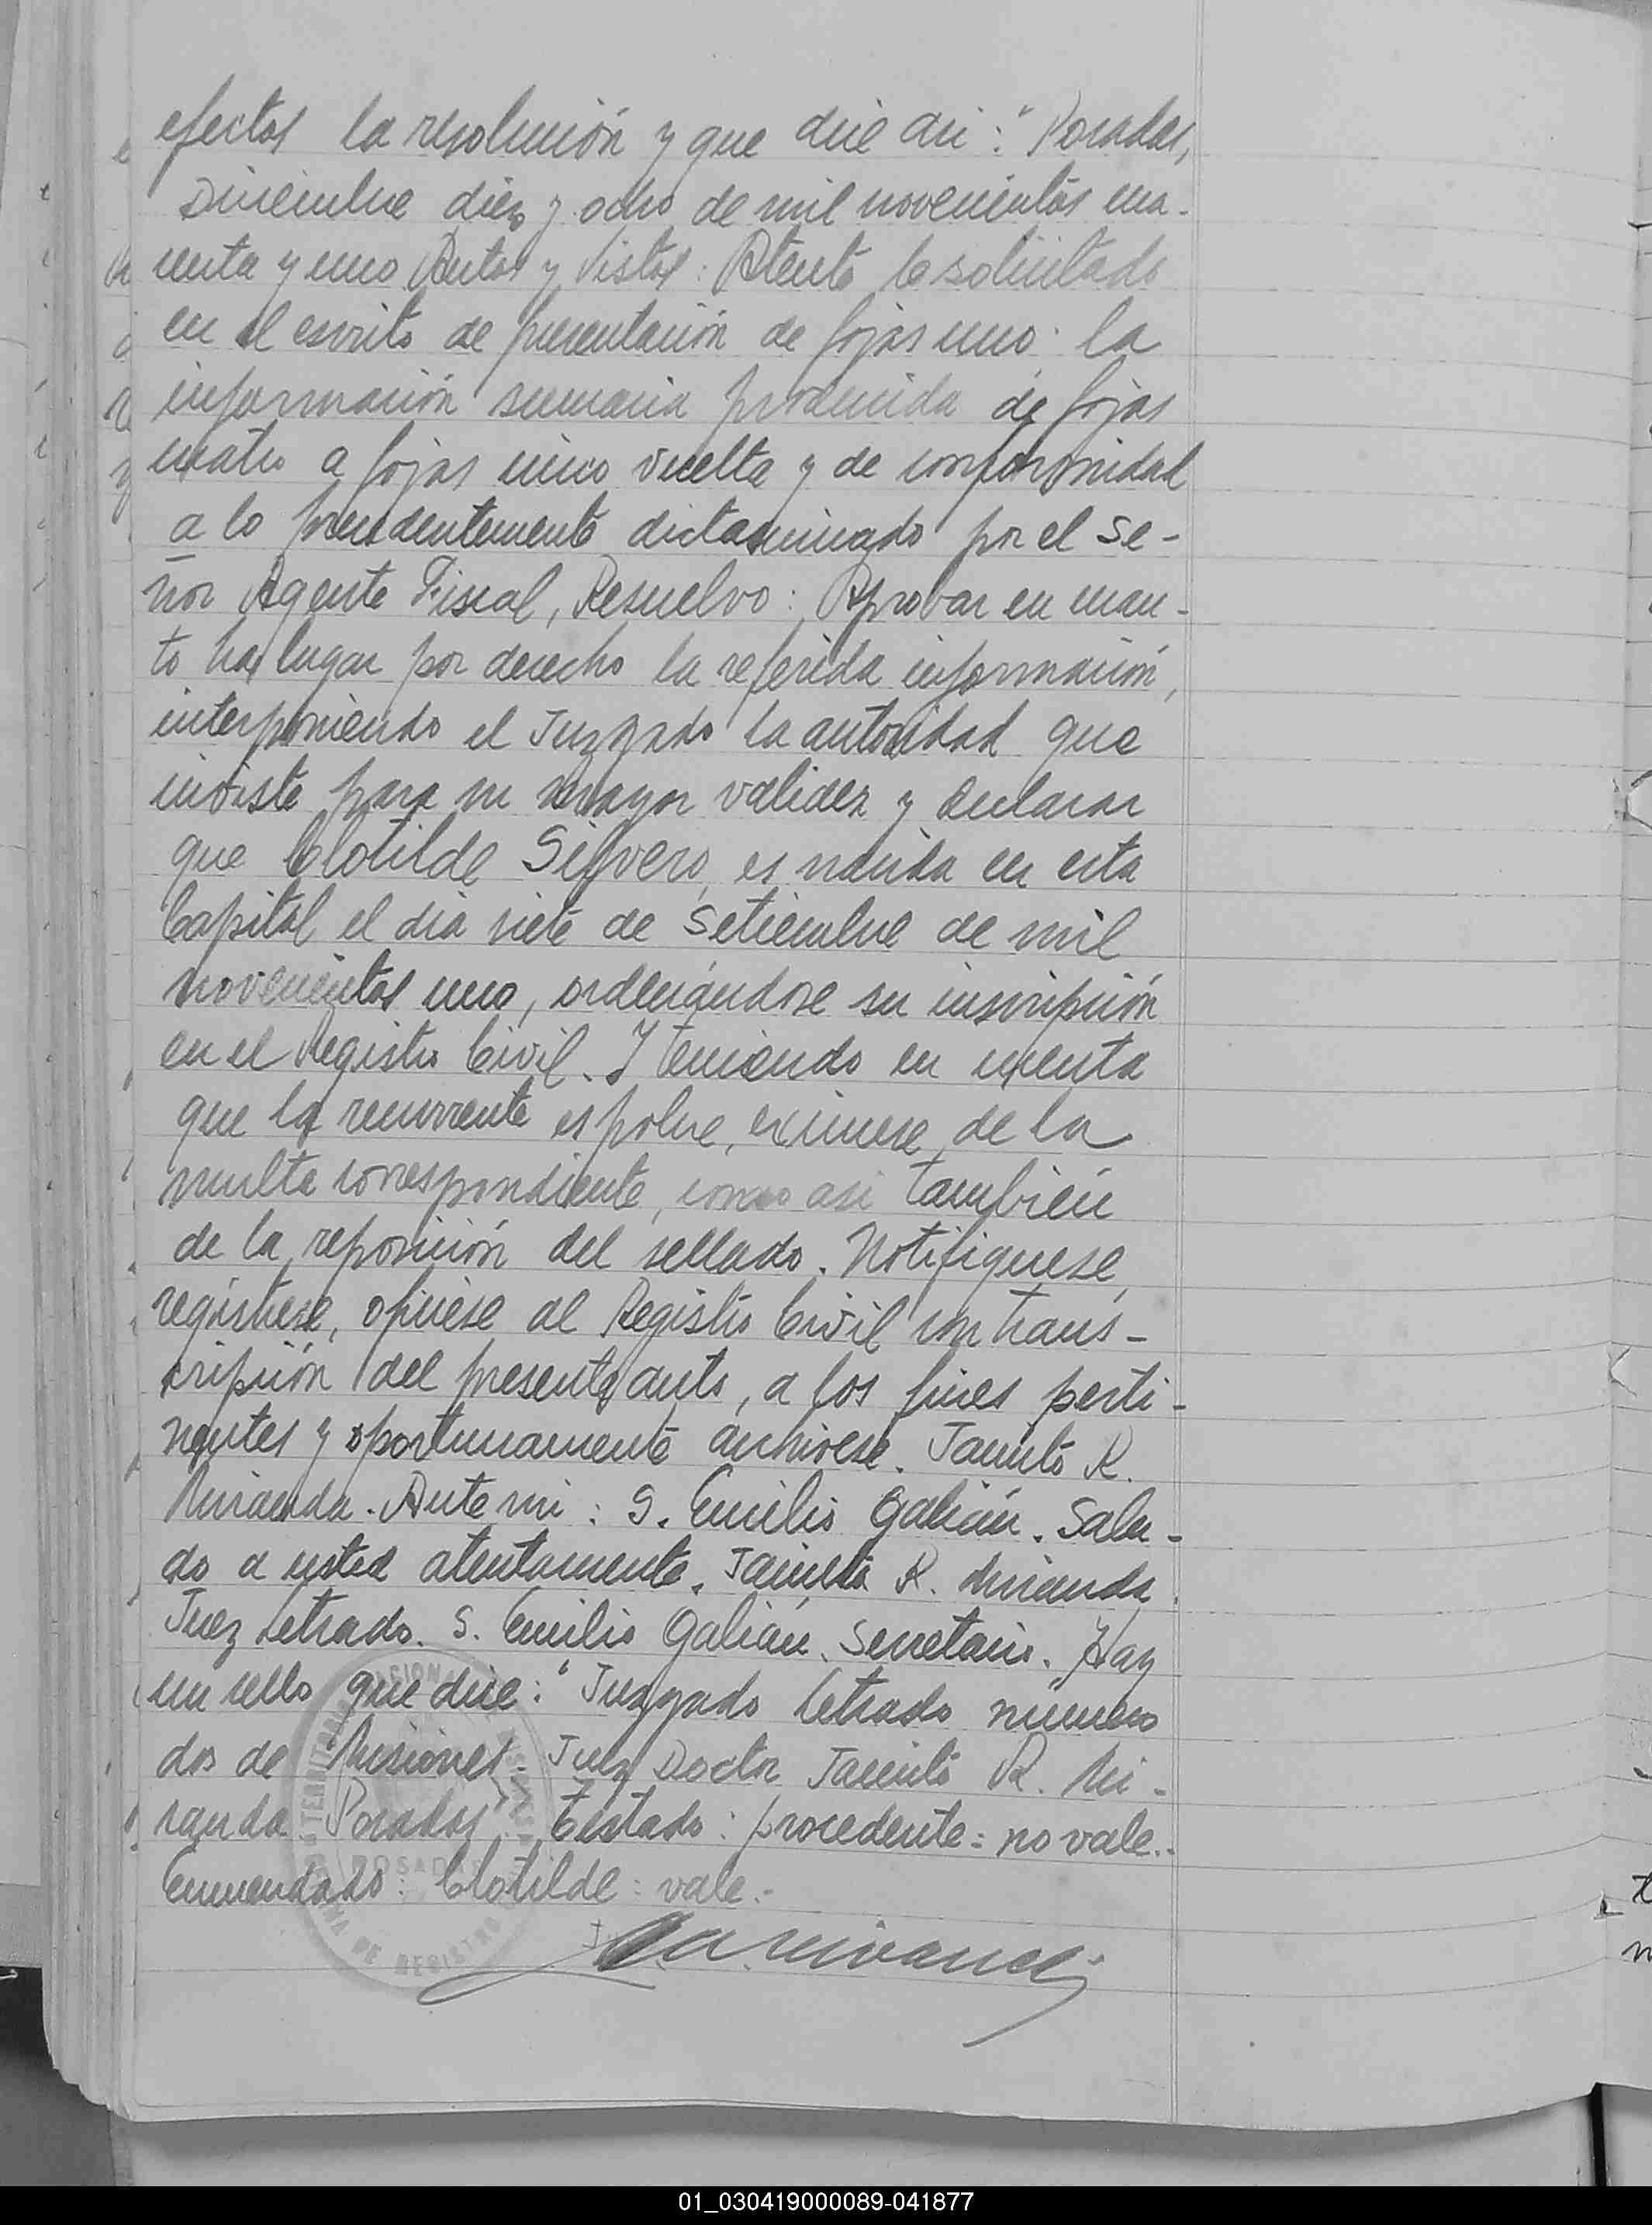 efectos la resolución y que dice asi: "Posadas,
Diciembre diez y ocho de mil novecientos cua-
renta y uno Autos y Vistos: Atento lo solicitado
en el escrito de presentación de fojas uno; la
información sumaria producida de fojas
cuatro a fojas cinco vuelta y de conformidad
a lo precedentemente dictaminado por el Se-
ñor Agente Fiscal, Resuelvo: Aprobar en cuan-
to ha lugar por derecho la referida información,
interponiendo el Juzgado la autoridad que
inviste para su mayor validez y declarar
que Clotilde Silvero, es nacida en esta
Capital el día siete de Setiembre de mil
novecientos uno, ordenándose su inscripción
en el Registro Civil. Y teniendo en cuenta
que la recurrente es pobre, eximese de la
multa correspondiente, como asi también
de la reposición del sellado. Notifiquese,
registrese, ofíciese al Registro Civil con trans-
cripción del presente auto, a los fines perti-
nentes y oportunamente archivese. Jacinto R.
Miranda. Ante mi: S. Emilio Galián. Salu-
do a usted atentamente. Jacinto R. Miranda
Juez Letrado. S. Emilio Galián. Secretario. Hay
un sello que dice: "Juzgado Letrado número
dos de Misiones. Juez Doctor Jacinto R. Mi-
randa Posadas" Testado: procedente: no vale.-
Enmendado: Clotilde: vale.-
POSADAS
DE REGISTRO
01_030419000089-041877